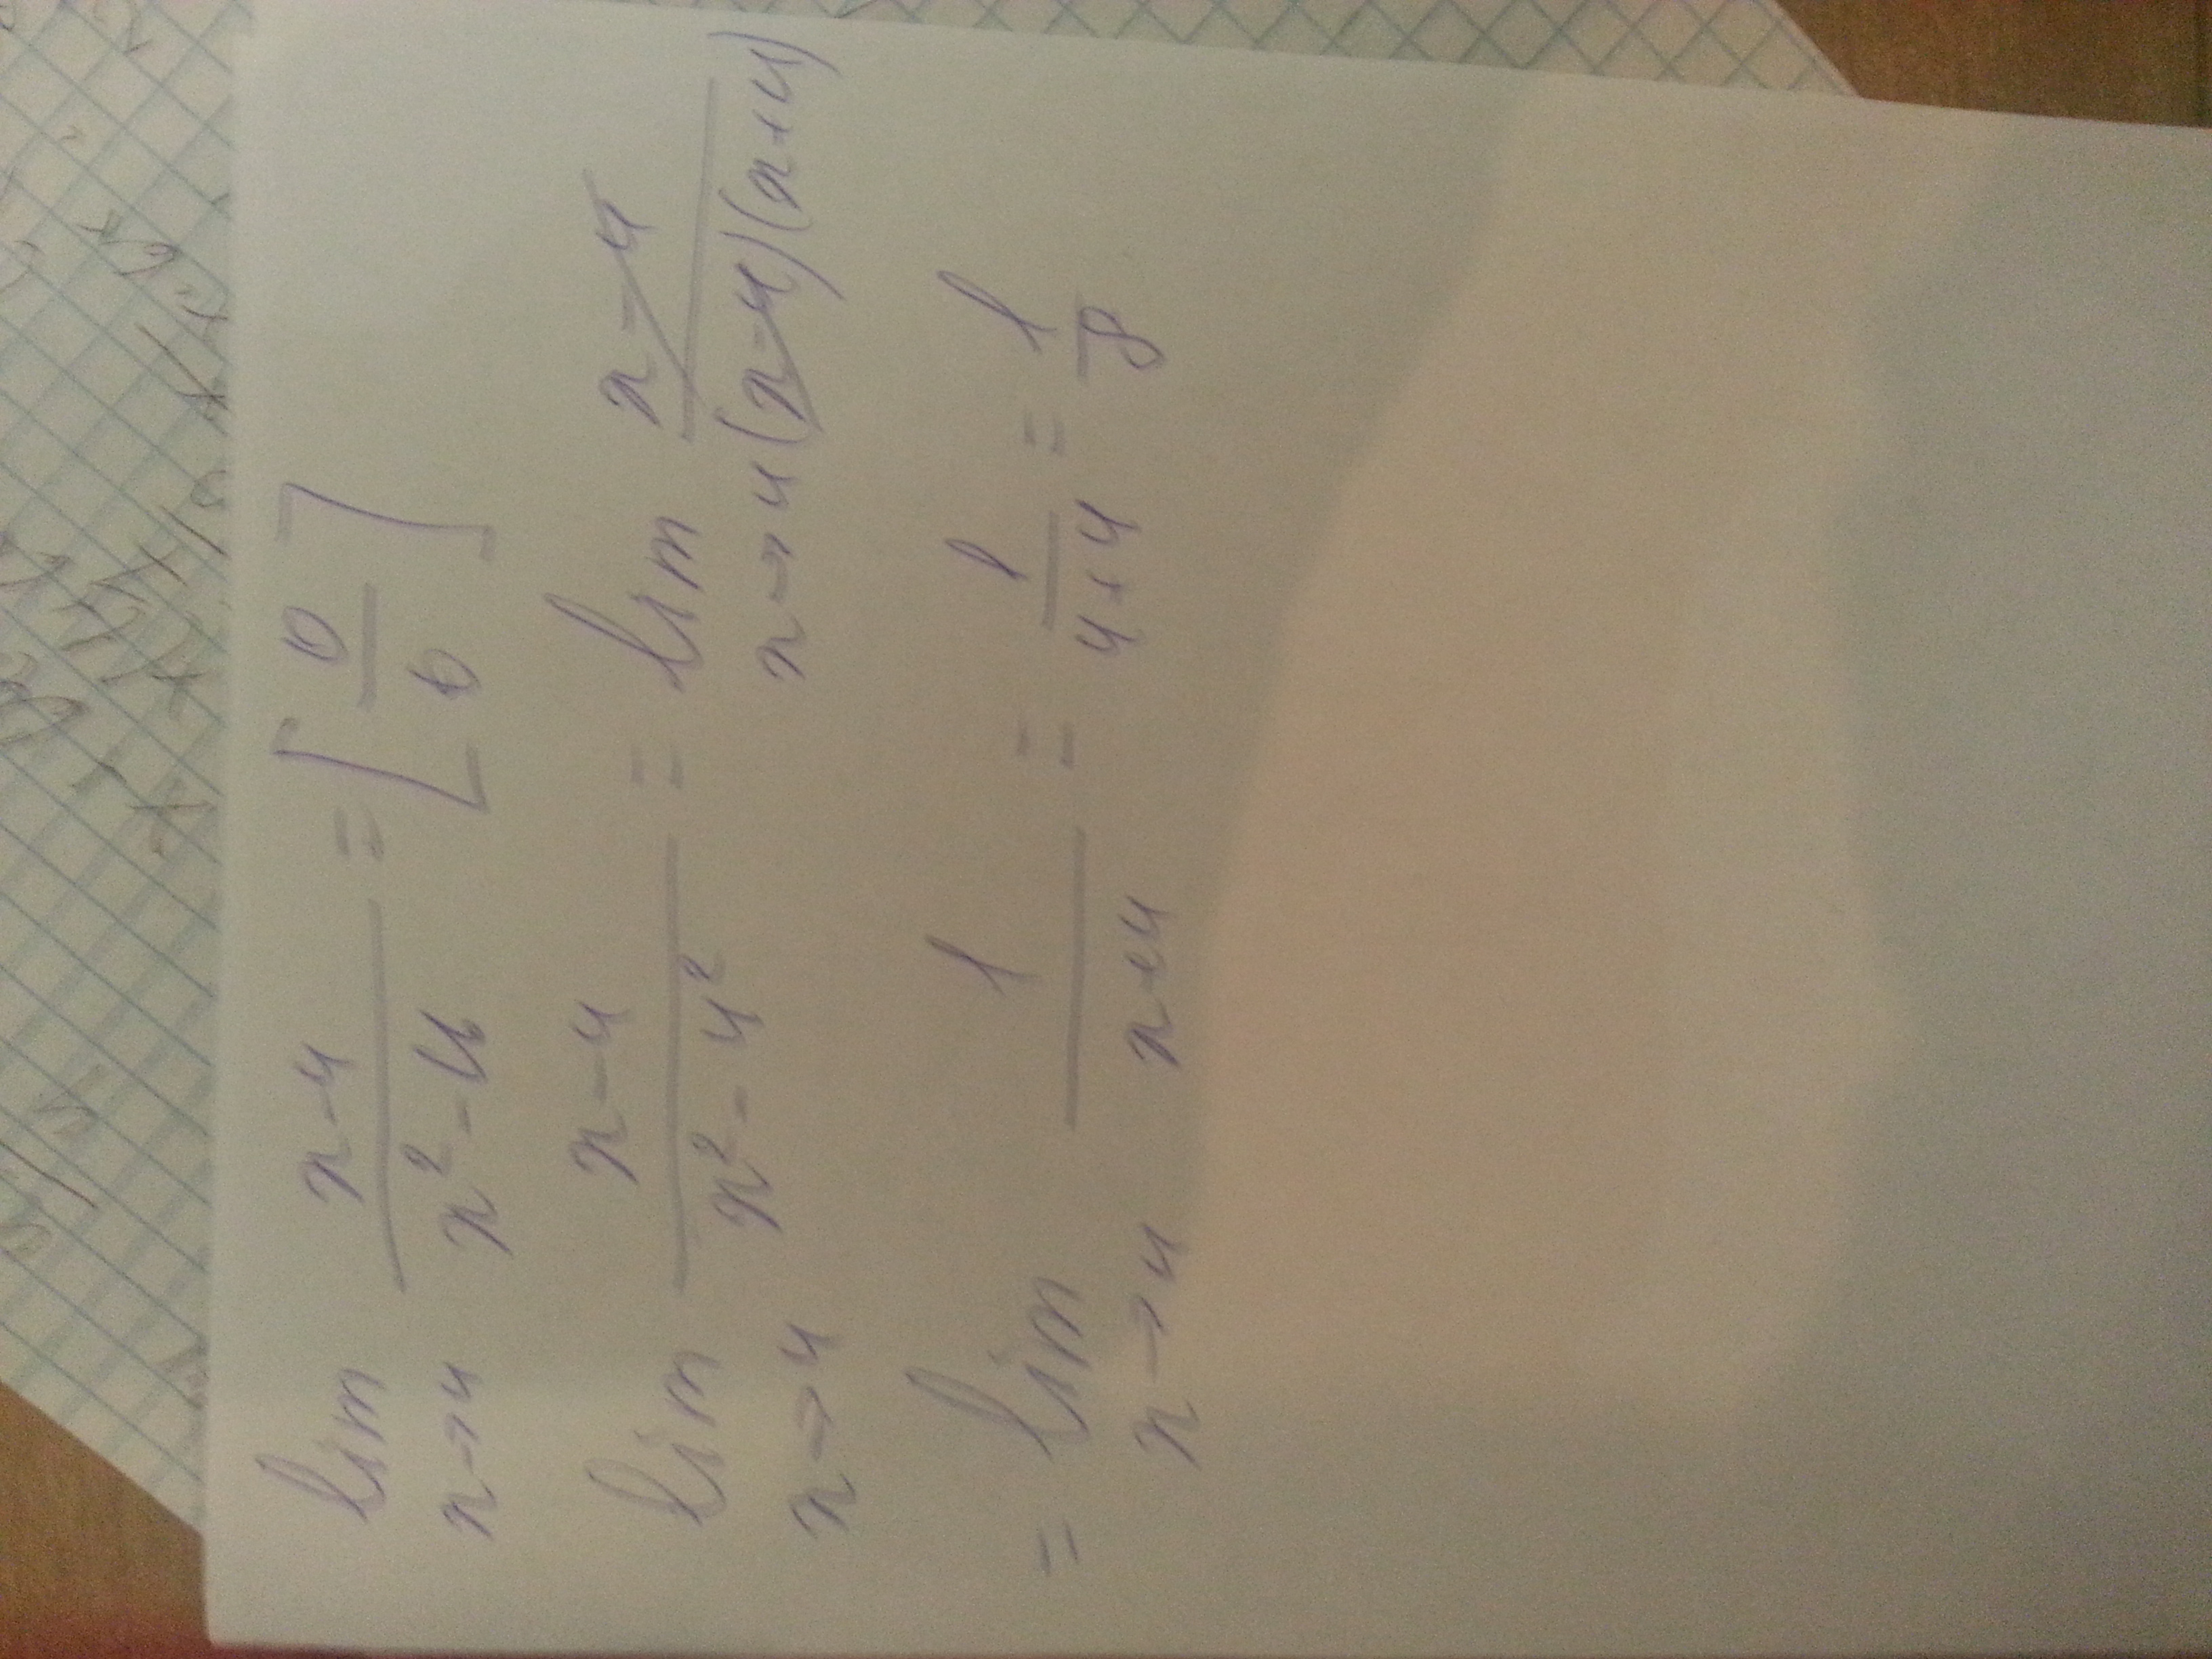 lim x→4 (x-4)/(x²-16) = [0/0]
lim x→4 (x-4)/(x²-4²) = lim x→4 (x-4)/((x-4)(x+4))
= lim x→4 1/(x+4) = 1/(4+4) = 1/8